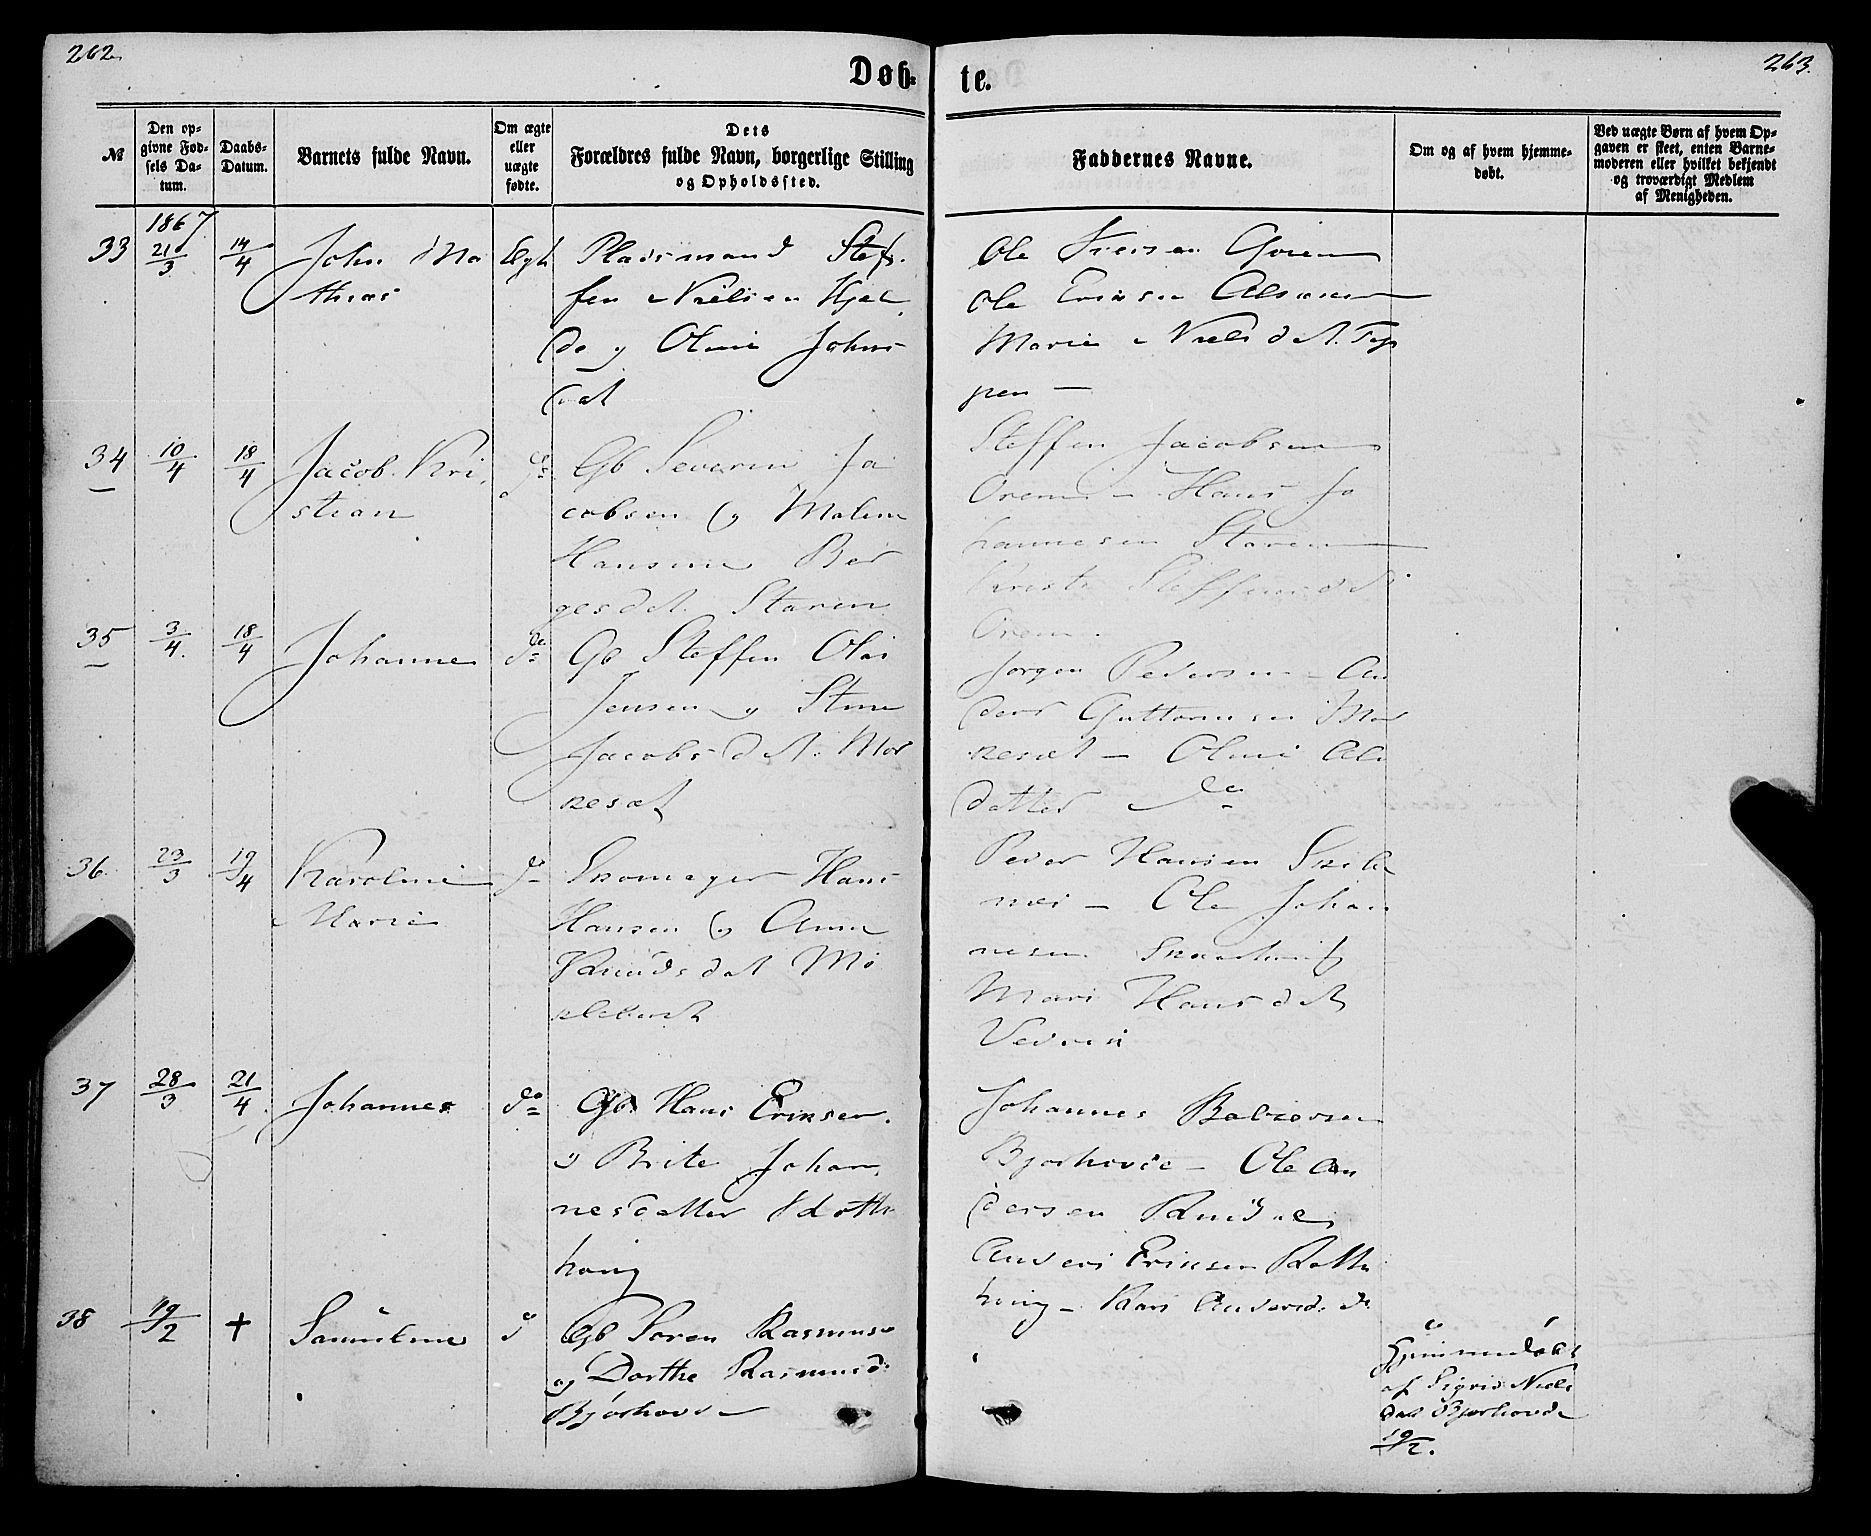 262.
263.
Døb-
te.
№
Den op-
givne Fød-
sels Da-
tum.
Daabs-
Datum.
Barnets fulde Navn.
Om ægte
eller
uægte
fødte.
Dets
Forældres fulde Navn, borgerlige Stilling
og Opholdssted.
Faddernes Navne.
Om og af hvem hjemme-
døbt.
Ved uægte Børn af hvem Op-
gaven er skeet, enten Barne-
moderen eller hvilket bekjendt
og troværdigt Medlem
af Menigheden.
1867
33 21/3 14/4 John Ma
thias
Ægt
Pladsmand Stef-
fen Nielsen Hjel
de og Oline Johns
dat
Ole Iversen
Ole Eriksen
Marie Nielsdat. Top
pen —
34 10/4 18/4 Jacob Kri
stian
do
Gb Severin Ja
cobsen og Malene
Hansine Bør
gesdat. Staren
Steffen Jacobsen
Orem — Hans Jo
hannesen Staren
Steffensdat
Orem.
35 3/4 18/4 Johanne
do
Gb Steffen Olai
Jensen og Stine
Jacobsdat. Mor
kesæt
Jørgen Pedersen — An
ders Guttormsen Mor
kesæt — Oline Ols
datter do
36. 23/3 19/4 Karoline
Marie
do
Skomager Hans
Hansen og Anne
Knudsdat Mø
klebust
Peder Hansen
Ole Johan
nesen
Mari Hansdat
37 28/3 21/4 Johannes
do
Gb. Hans Eriksen.
og Brite Johan
nesdatter Rotte
houg
Johannes Balzersen
Bjørhovde — Ole An
dersen
Anders Eriksen Rotte
houg — Kari Andersdat
38 19/2 + Samuline
do
Gb Søren Rasmuse
og Dorthe Rasmusd.
Bjørhovde
Hjemmedøbt
af Sigrid Niels
dat Bjørhovde
19/2.